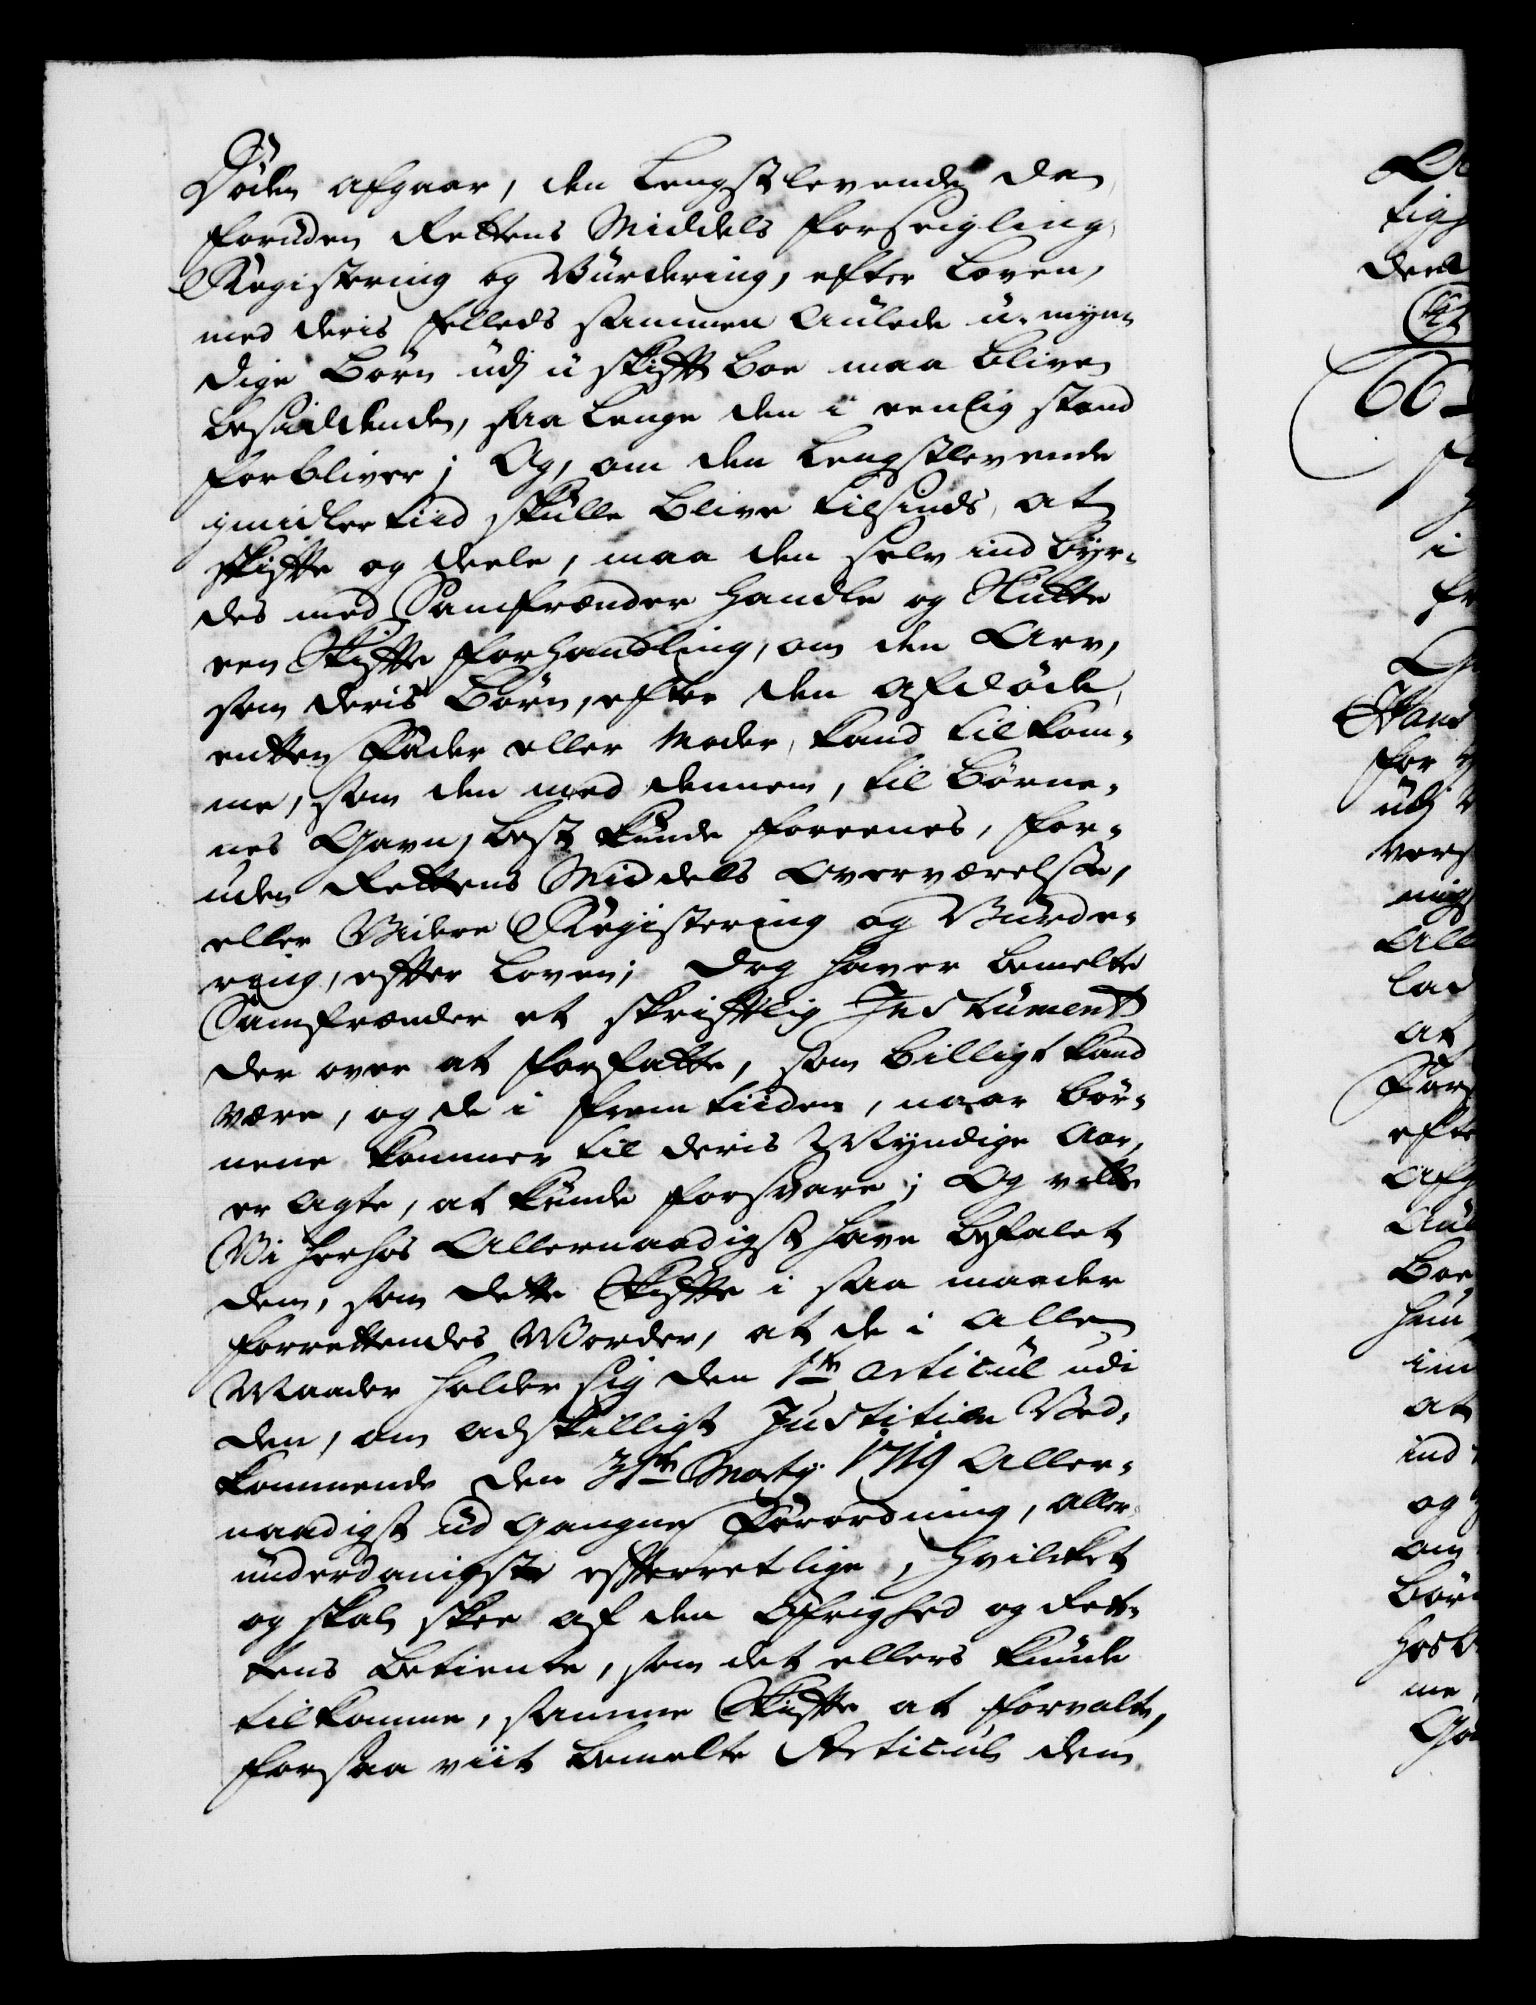 Döden afgaar, den Lengstlevende da
foruden Rettens Middels Forseigling,
Registering og Vurdering, efter Loven,
med deris felleds sammen Aulede u-myn-
dige Börn udj u skifft Boe maa blive
besiddende, saa lenge den i eenlig stand
forbliver; Og, om den Lengstlevende
jmidlertiid skulle blive tilsinds at
skiffte og deele, maa den selv ind byr-
des med Samfrænder handle og slutte
een Skiffte forhandling, om den Arv,
som deris Börn, efter den afdöde
entten Fader eller Moder, kand tilkom-
me, som den med dennem, til Börne-
nes Gavn, best kunde foreenes, for-
uden Rettens Middels Overværelse,
eller Videre Registering og Vurde-
ring, effter Loven; Dog haver bemelte
Samfrænder et skrifftlig Instrument
der over at forfatte, som billigt kand
være, og de i frem tiiden, naar Bör-
nene kommer til deris Myndige Aar,
er agte, at kunde forsvare; Og ville
Vi herhos Allernaadigst have befalet
dem, som dette Skiffte i saa maader
forrettendes Vorder, at de i alle
Maader holder sig den 1ste Articul udi
den, om adskilligt Justitien Ved-
kommende den 31te Martij 1719 Aller-
naadigst ud gangne Forordning, aller-
underdanigste effterretlige, hvilcket
og skal skee af den Öfrighed og Ret-
tens Betiente, som det ellers kunde
tilkomme, samme Skiffte at forvalte,
forsaa viit bemelte Articul dem